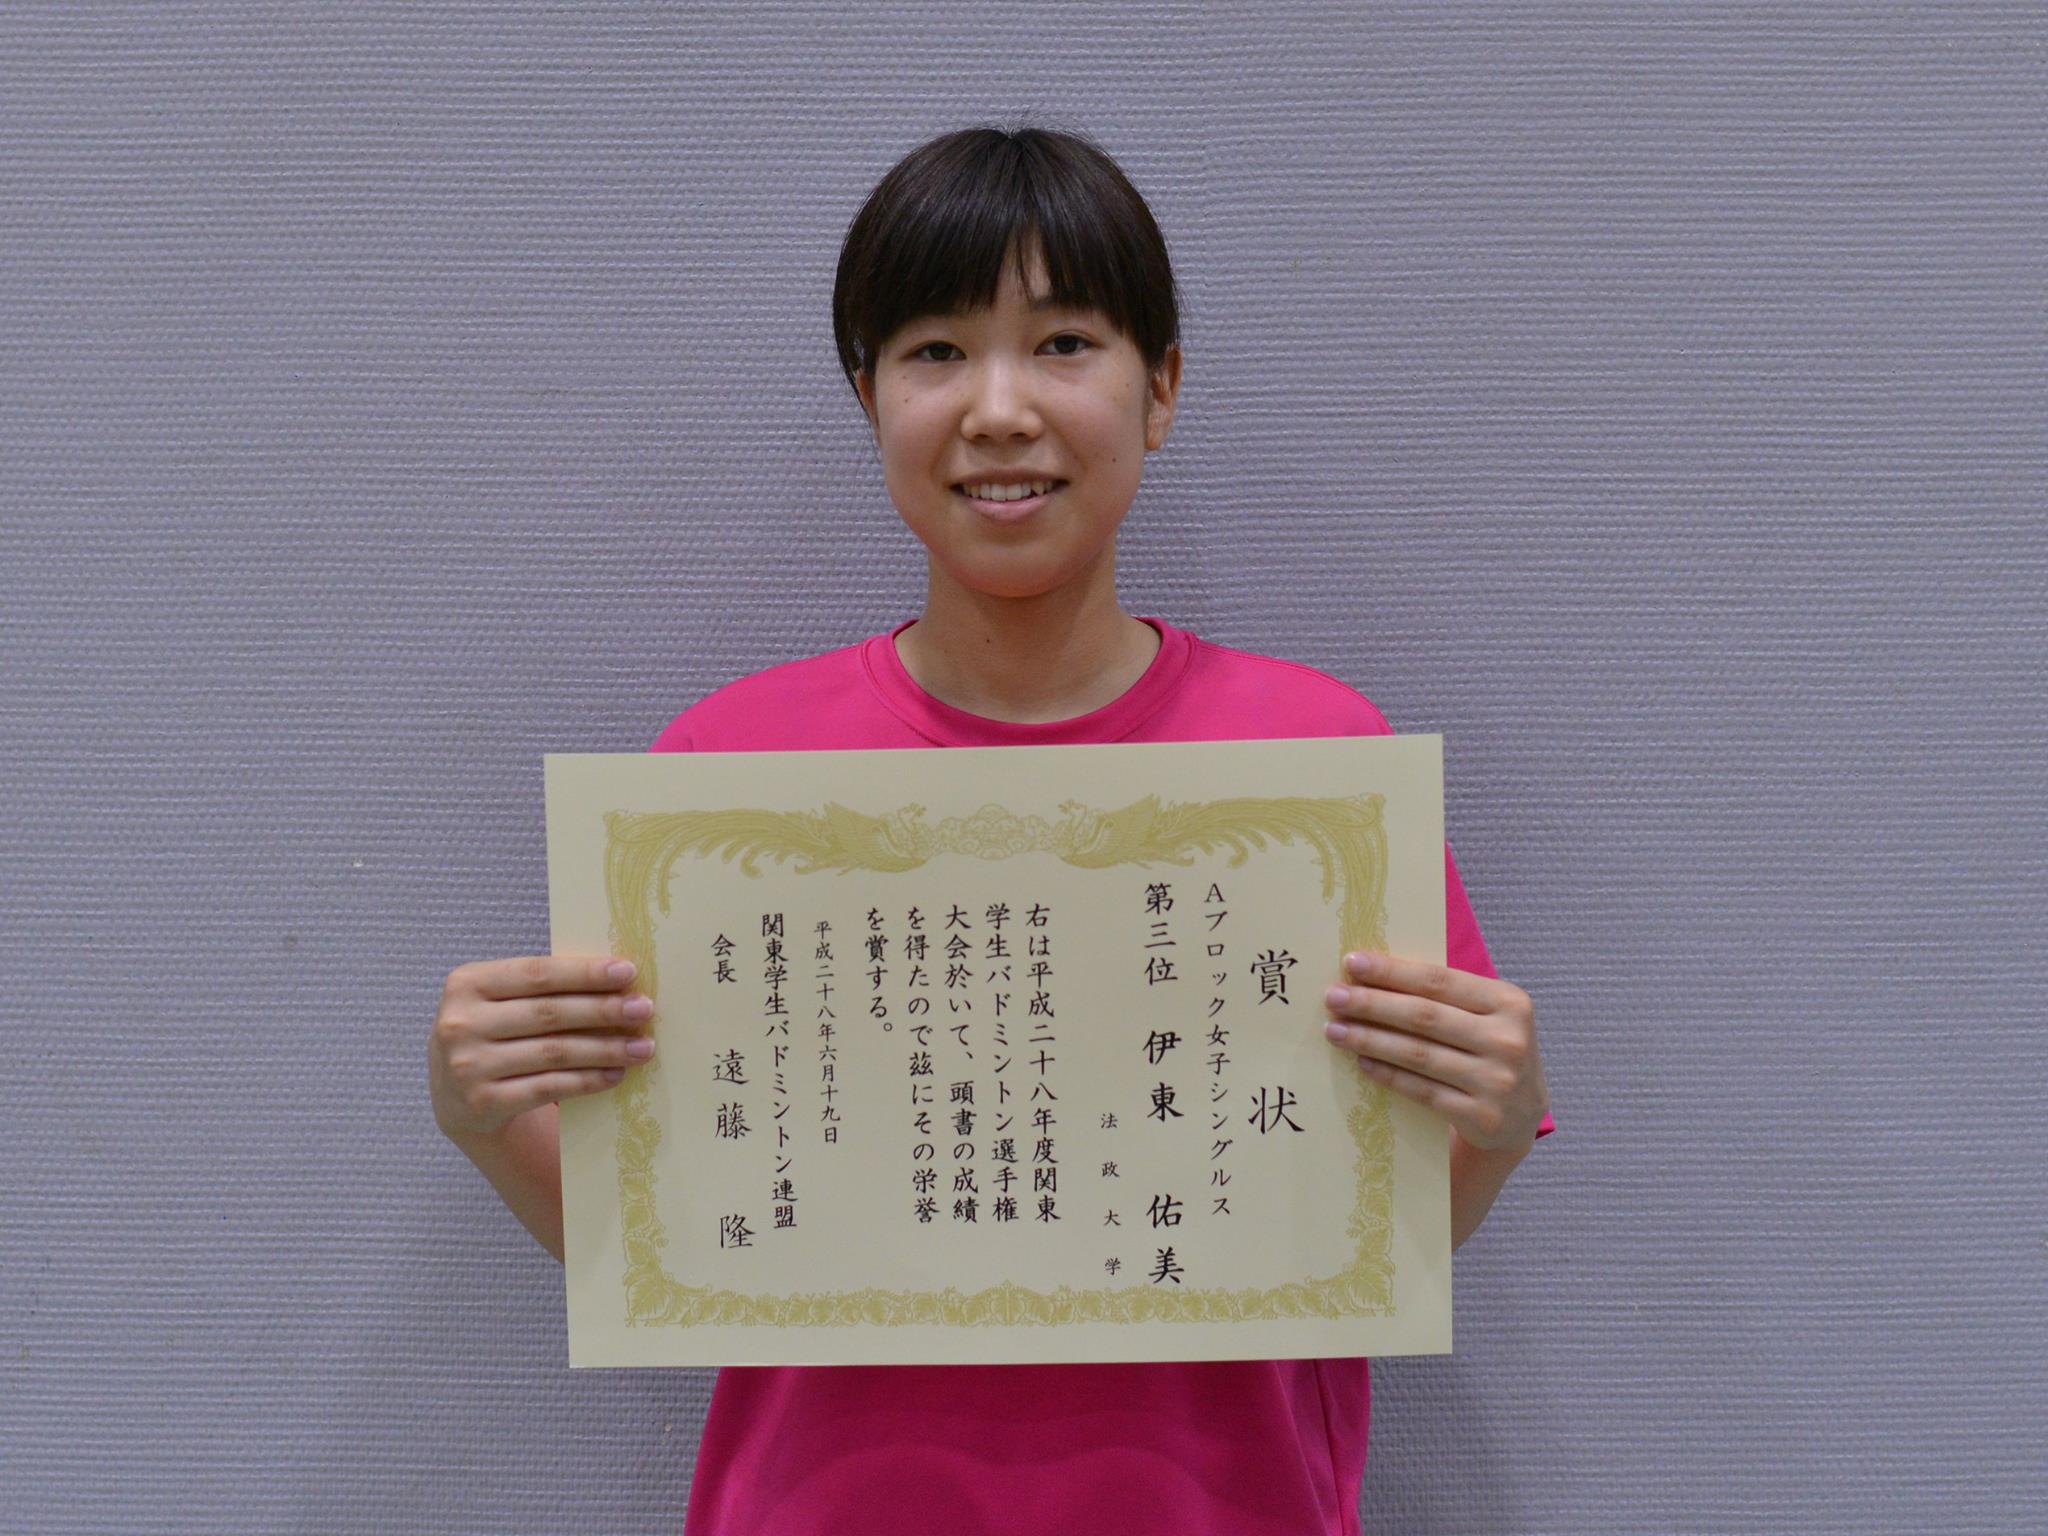 賞状
Aブロック女子シングルス
第三位 伊東 佑美
法政大学
右は平成二十八年度関東
学生バドミントン選手権
大会於いて、頭書の成績
を得たので茲にその栄誉
を賞する。
平成二十八年六月十九日
関東学生バドミントン連盟
会長 遠藤 隆